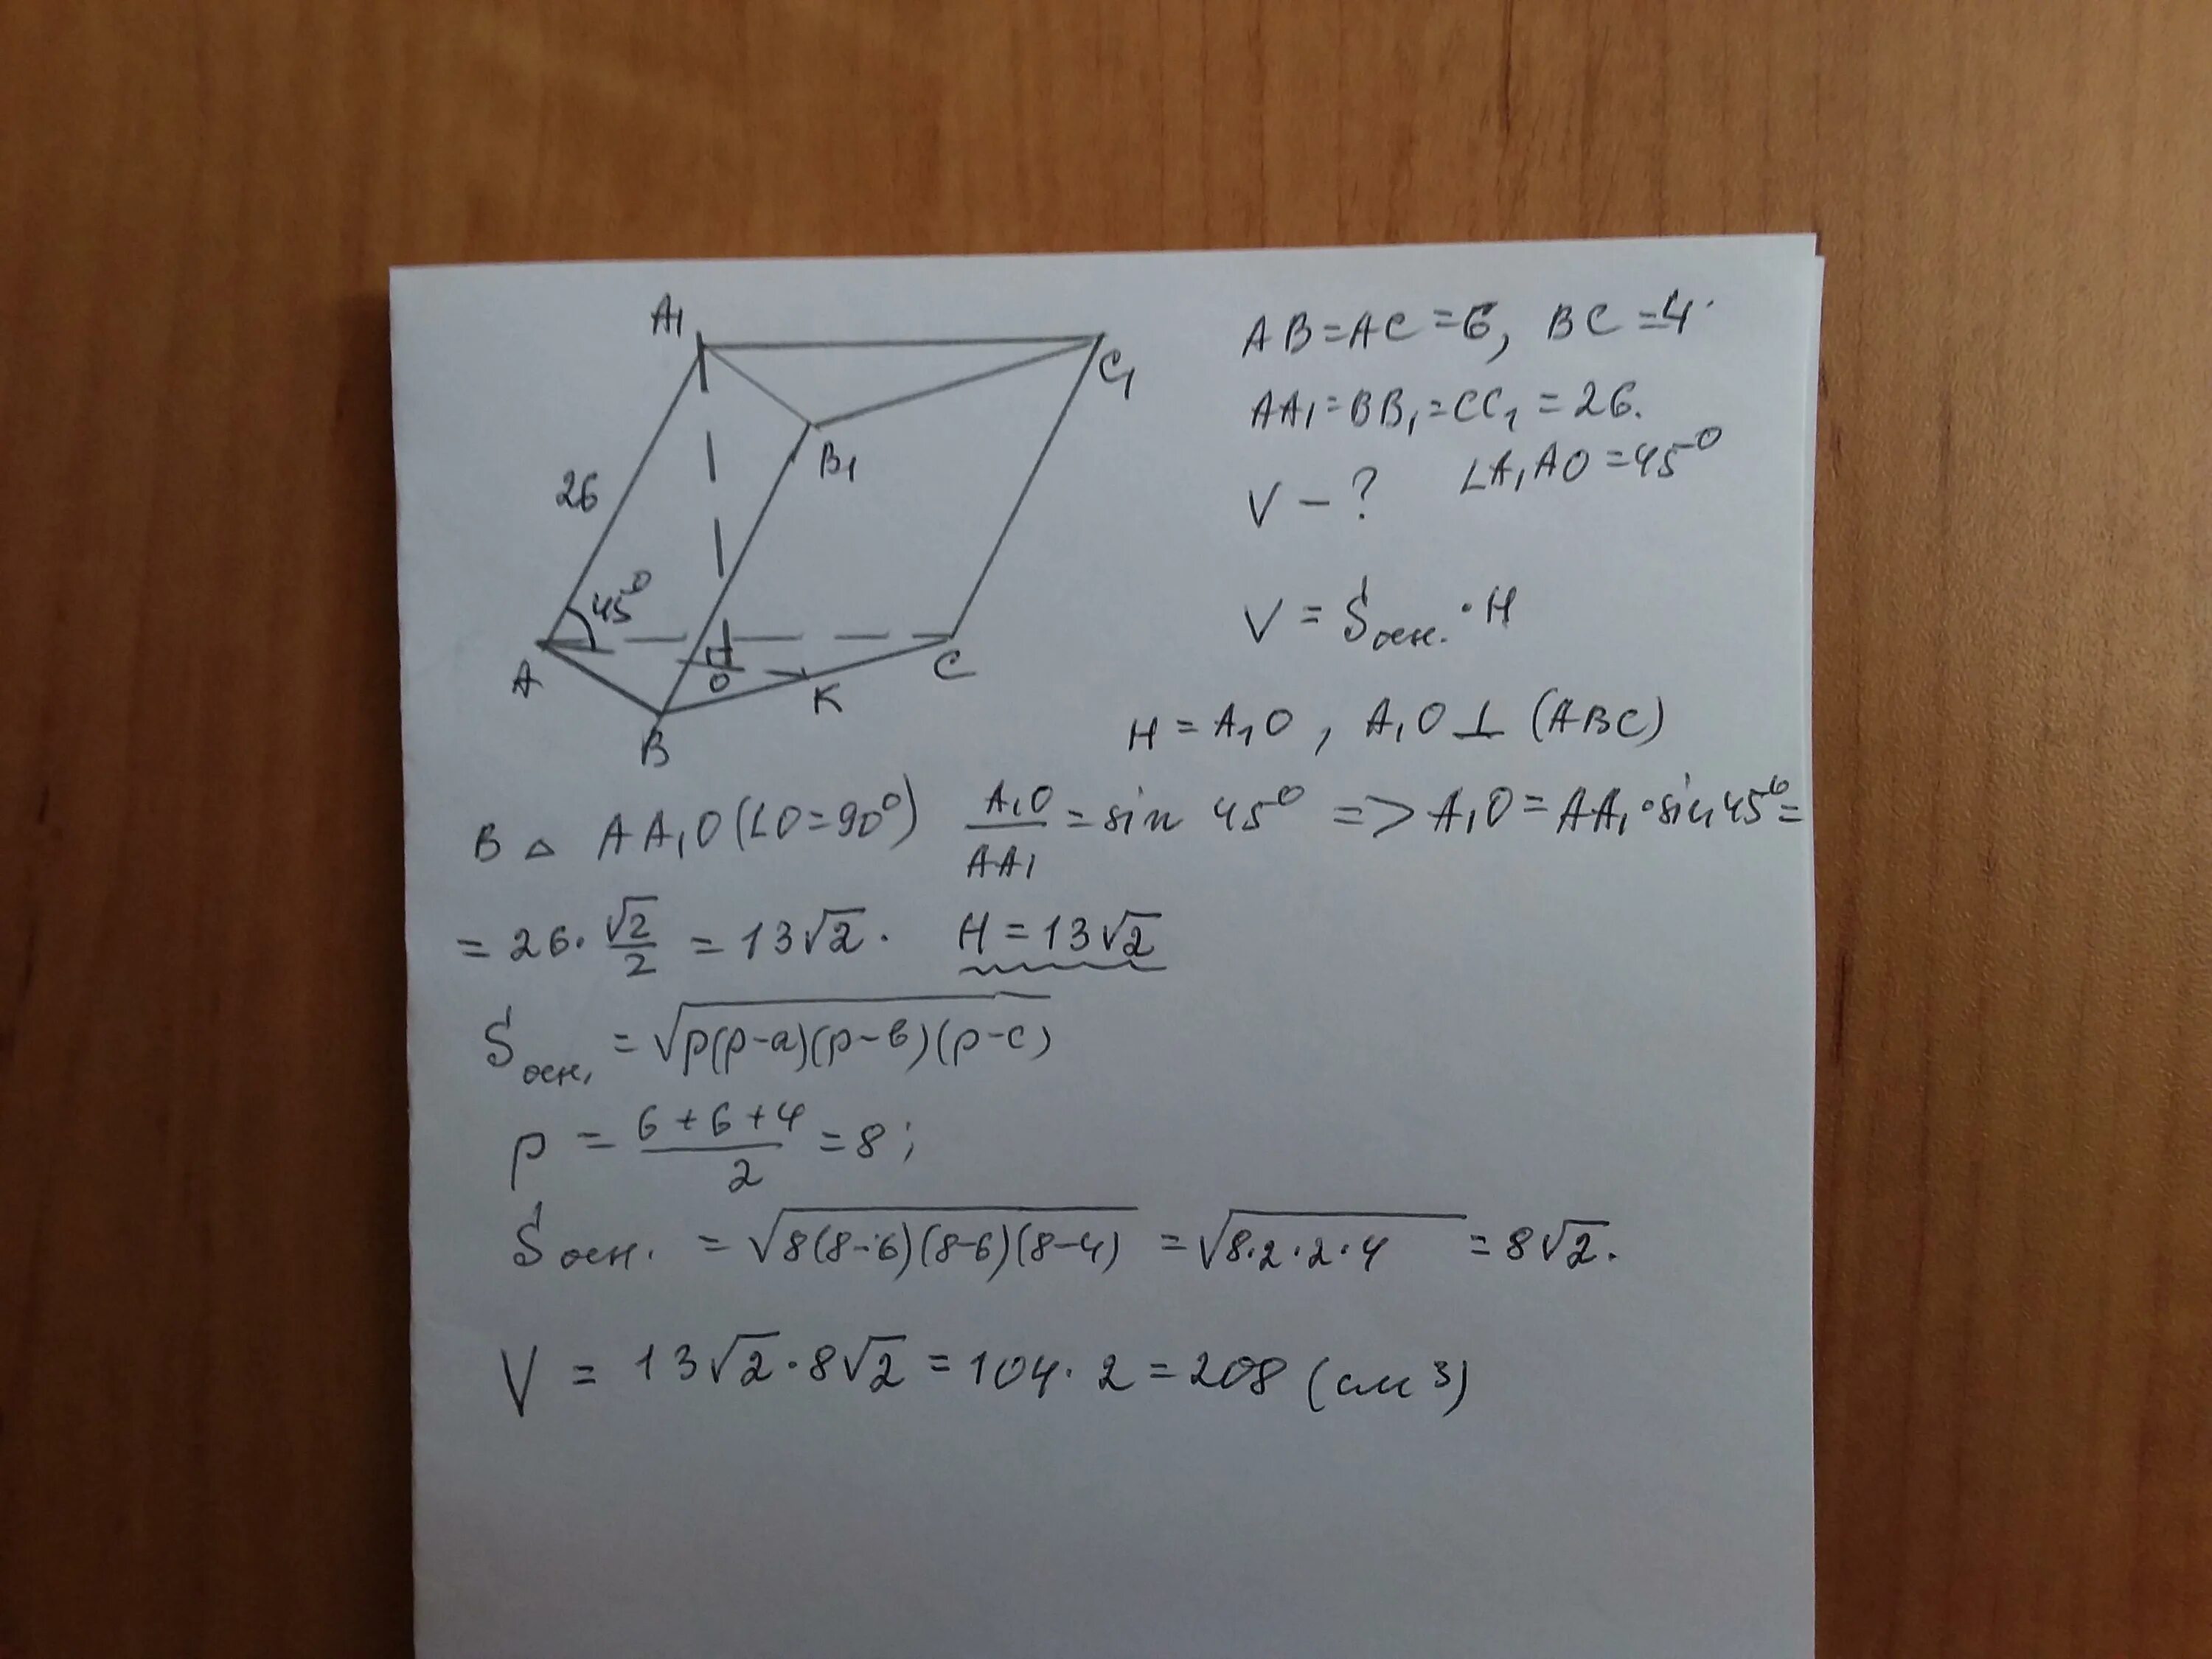 A1
C1
B1
26
45°
A
O
K
C
B
AB=AC=6, BC=4.
AA1=BB1=CC1=26.
V-? ∠A1AO=45°
V = Sосн. · H
H = A1O, A1O⊥(ABC)
В △ AA1O (∠O=90°) A1O/AA1 = sin 45° => A1O = AA1·sin45° =
= 26·√2/2 = 13√2. H=13√2
Sосн. = √p(p-a)(p-в)(p-c)
p = (6+6+4)/2 = 8;
Sосн. = √8(8-6)(8-6)(8-4) = √8·2·2·4 = 8√2.
V = 13√2·8√2 = 104·2 = 208 (см3)